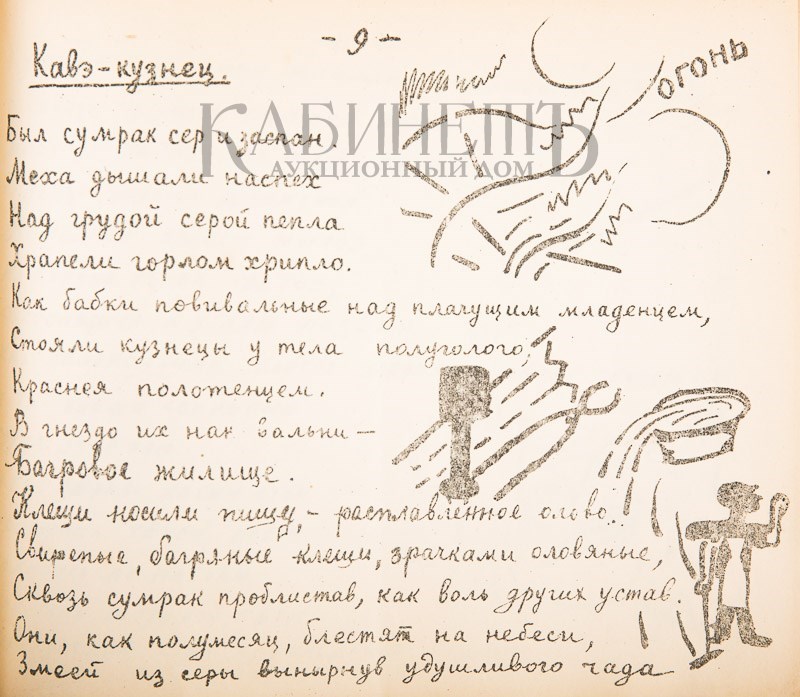 - 9 -
Кавэ-кузнец.
огонь
КАБИНЕТЪ
АУКЦИОННЫЙ ДОМ
Был сумрак сер и заспан.
Меха дышали наспех
Над грудой серой пепла
Храпели горлом хрипло.
Как бабки повивальные над плачущим младенцем,
Стояли кузнецы у тела полуголого,
Краснея полотенцем.
В гнездо их наковальни —
Багровое жилище.
Клещи носили пищу, - расплавленное олово..
Свирепые, багряные клещи, зрачками оловяные,
Сквозь сумрак проблистав, как воль других устав.
Они, как полумесяц, блестят на небеси,
Змеей из серы вынырнув удушливого чада